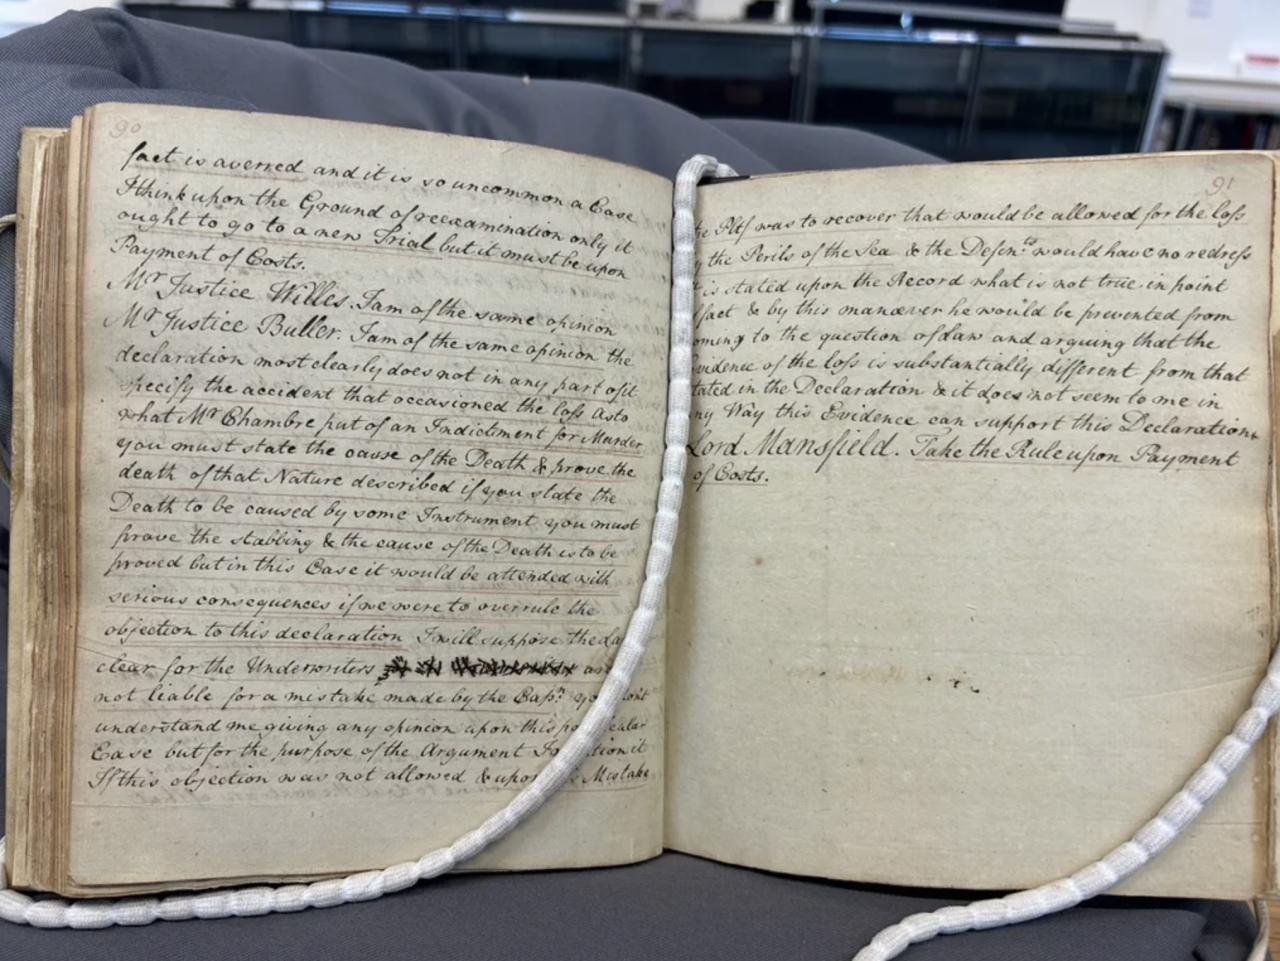 90
fact is averred and it is so uncommon a Case
I think upon the Ground of reexamination only it
ought to go to a new Trial but it must be upon
Payment of Costs.
Mr Justice Willes. I am of the same opinion
Mr Justice Buller. I am of the same opinion the
declaration most clearly does not in any part of it
specify the accident that occasioned the loss As to
what Mr Chambre put of an Indictment for Murder
you must state the cause of the Death & prove the
death of that Nature described if you state the
Death to be caused by some Instrument you must
prove the stabbing & the cause of the Death is to be
proved but in this Case it would be attended with
serious consequences if we were to overrule the
objection to this declaration I will suppose the
clear for the Underwriters
not liable for a mistake made by the Capn.
understand me giving any opinion upon this
Case but for the purpose of the Argument
If this objection was not allowed & upon Mistake
91
Pltf was to recover that would be allowed for the loss
the Perils of the Sea & the Defents would have no redress
is stated upon the Record what is not true in point
fact & by this manœver he would be prevented from
to the question of Law and arguing that the
of the loss is substantially different from that
in the Declaration & it does not seem to me in
Way this Evidence can support this Declaration
Lord Mansfield. Take the Rule upon Payment
of Costs.